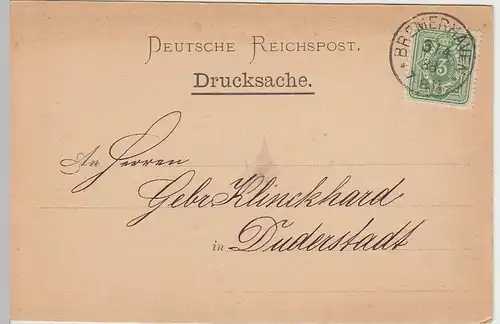 DEUTSCHE REICHSPOST.
BREMERHAVEN
3
Drucksache.
An Herren
Gebr Klinckhard
in Duderstadt